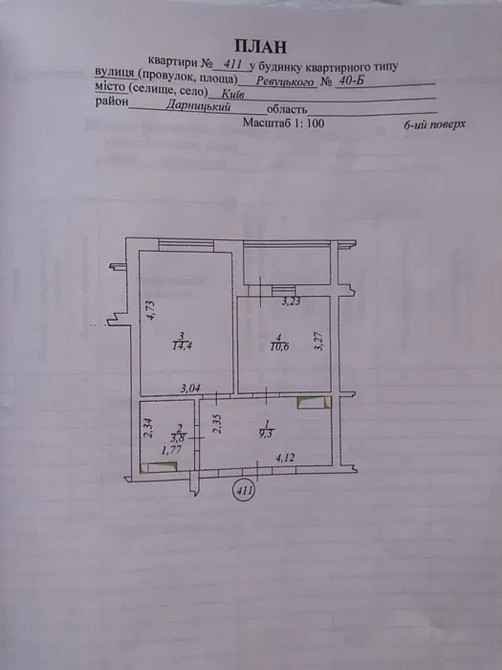 ПЛАН
квартири № 411 у будинку квартирного типу
вулиця (провулок, площа) Ревуцького № 40-Б
місто (селище, село) Київ
район Дарницький область
Масштаб 1: 100
6-ий поверх
3,23
4,73
3
14,4
4
10,6
3,27
3,04
2,34
2
3,8
1,77
2,35
1
9,3
4,12
411